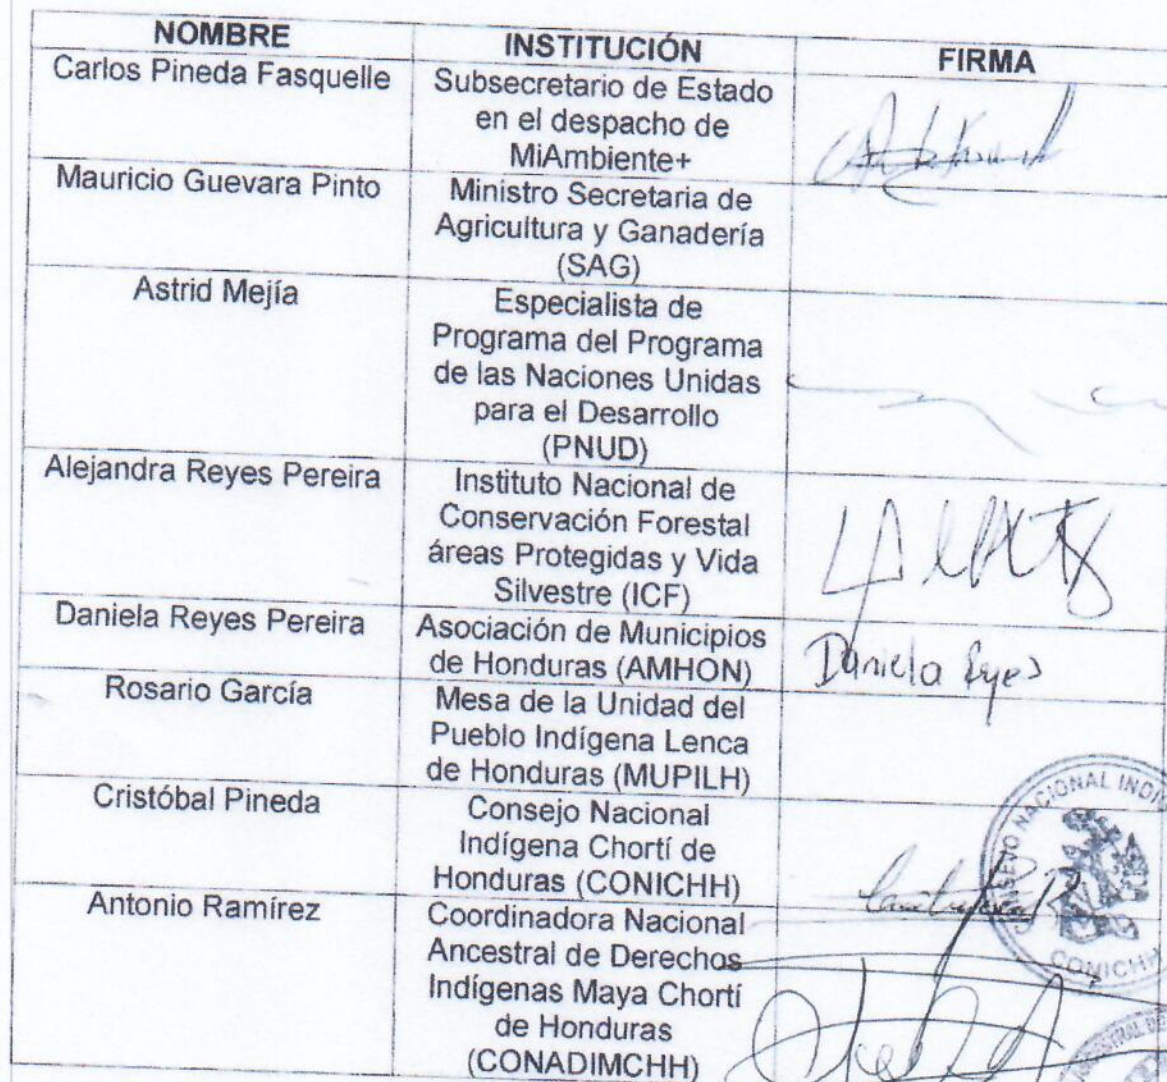 NOMBRE INSTITUCIÓN FIRMA
Carlos Pineda Fasquelle Subsecretario de Estado
en el despacho de
MiAmbiente+
Mauricio Guevara Pinto Ministro Secretaria de
Agricultura y Ganadería
(SAG)
Astrid Mejía Especialista de
Programa del Programa
de las Naciones Unidas
para el Desarrollo
(PNUD)
Alejandra Reyes Pereira Instituto Nacional de
Conservación Forestal
áreas Protegidas y Vida
Silvestre (ICF)
Daniela Reyes Pereira Asociación de Municipios Daniela Reyes
de Honduras (AMHON)
Rosario García Mesa de la Unidad del
Pueblo Indígena Lenca
de Honduras (MUPILH)
Cristóbal Pineda Consejo Nacional
Indígena Chortí de
Honduras (CONICHH)
NACIONAL
CONICHH
Antonio Ramírez Coordinadora Nacional
Ancestral de Derechos
Indígenas Maya Chortí
de Honduras
(CONADIMCHH)